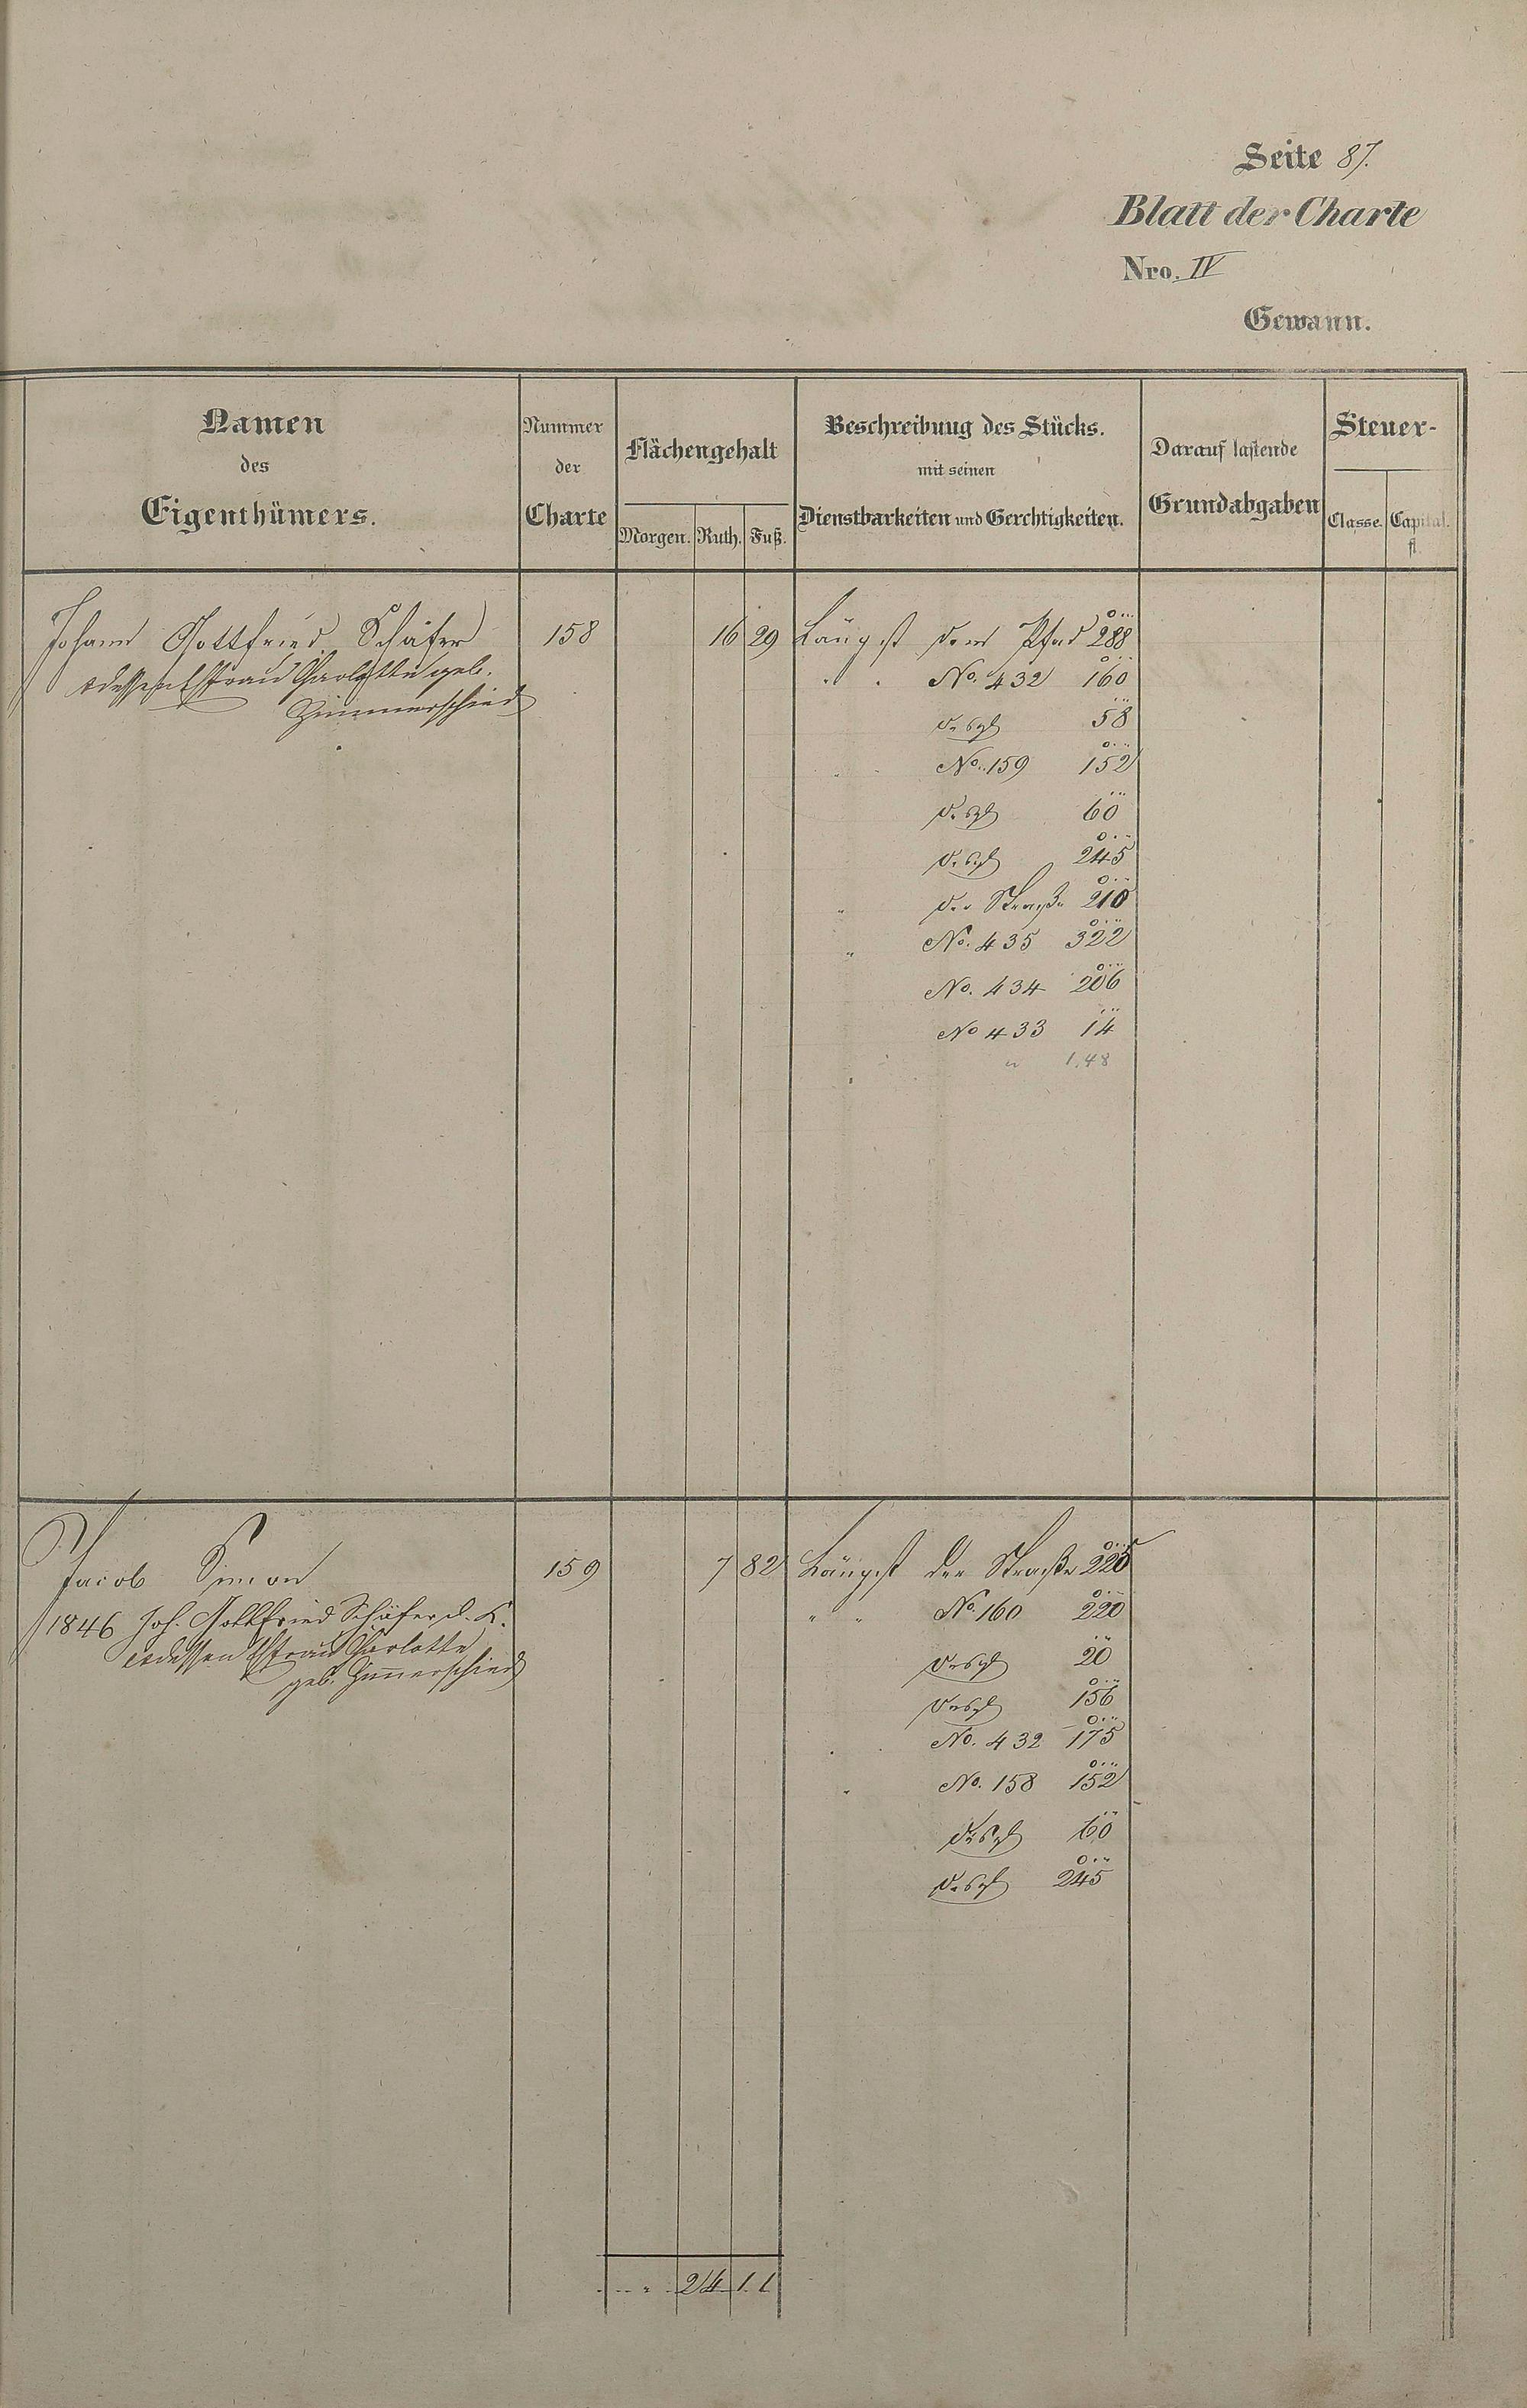 Seite 87.
Blatt der Charte
Nro. IV
Gewann.
Namen
des
Eigenthümers.
Nummer
der
Charte
Flächengehalt
Morgen. Ruth. Fuß.
Beschreibung des Stücks.
mit seinen
Dienstbarkeiten und Gerchtigkeiten.
Darauf lastende
Grundabgaben
Steuer-
Classe. Capital.
fl.
Johann Gottfried Schäfer 158 16 29 Längst dem Pfad 288
dessen Ehfrau Charlotte geb.
Zimmerschied
" " No. 432 160
desgl 58
No. 159 152
desgl 60
desgl 245
" der Straße 210
" No. 435 322
No. 434 206
No 433 14
" 1.48
Jacob Simon 159 7 82 Längst der Straße 225
1846 Joh. Gottfried Schäfer d. K.
dessen Ehfrau Charlotte
geb. Zimerschied
" " No. 160 220
desgl 20
desgl 156
No. 432 175
No. 158 152
desgl 60
desgl 245
24 11